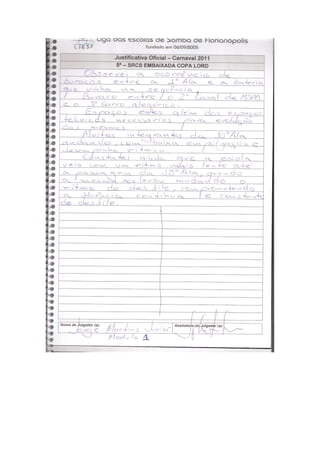 Liga das Escolas de Samba de Florianópolis
fundado em 06/09/2005
LIESF
Justificativa Oficial – Carnaval 2011
5ª – SRCS EMBAIXADA COPA LORD
Observei a ocorrência de
buracos entre a 1ª Ala e a bateria
que vinha na sequência,
Buraco entre o 2º Casal de MSPB
e o 3º carro alegórico.
Espaços estes além dos espaços
técnicos necessários para evolução
das mesmas.
Muitos integrantes da 10ª Ala
andando, com baixa empolgação e
desempenho rítmico.
Constatei ainda que a escola
veio com um ritmo mais lento até
a passagem da 10ª Ala, quando
a mesma acelerou mudando o
ritmo do desfile, comprometendo
a fluência contínua e constante
de desfile.
Nome do Julgador (a): Jorge Martins Junior
Assinatura do Julgador (a):
Modulo 1